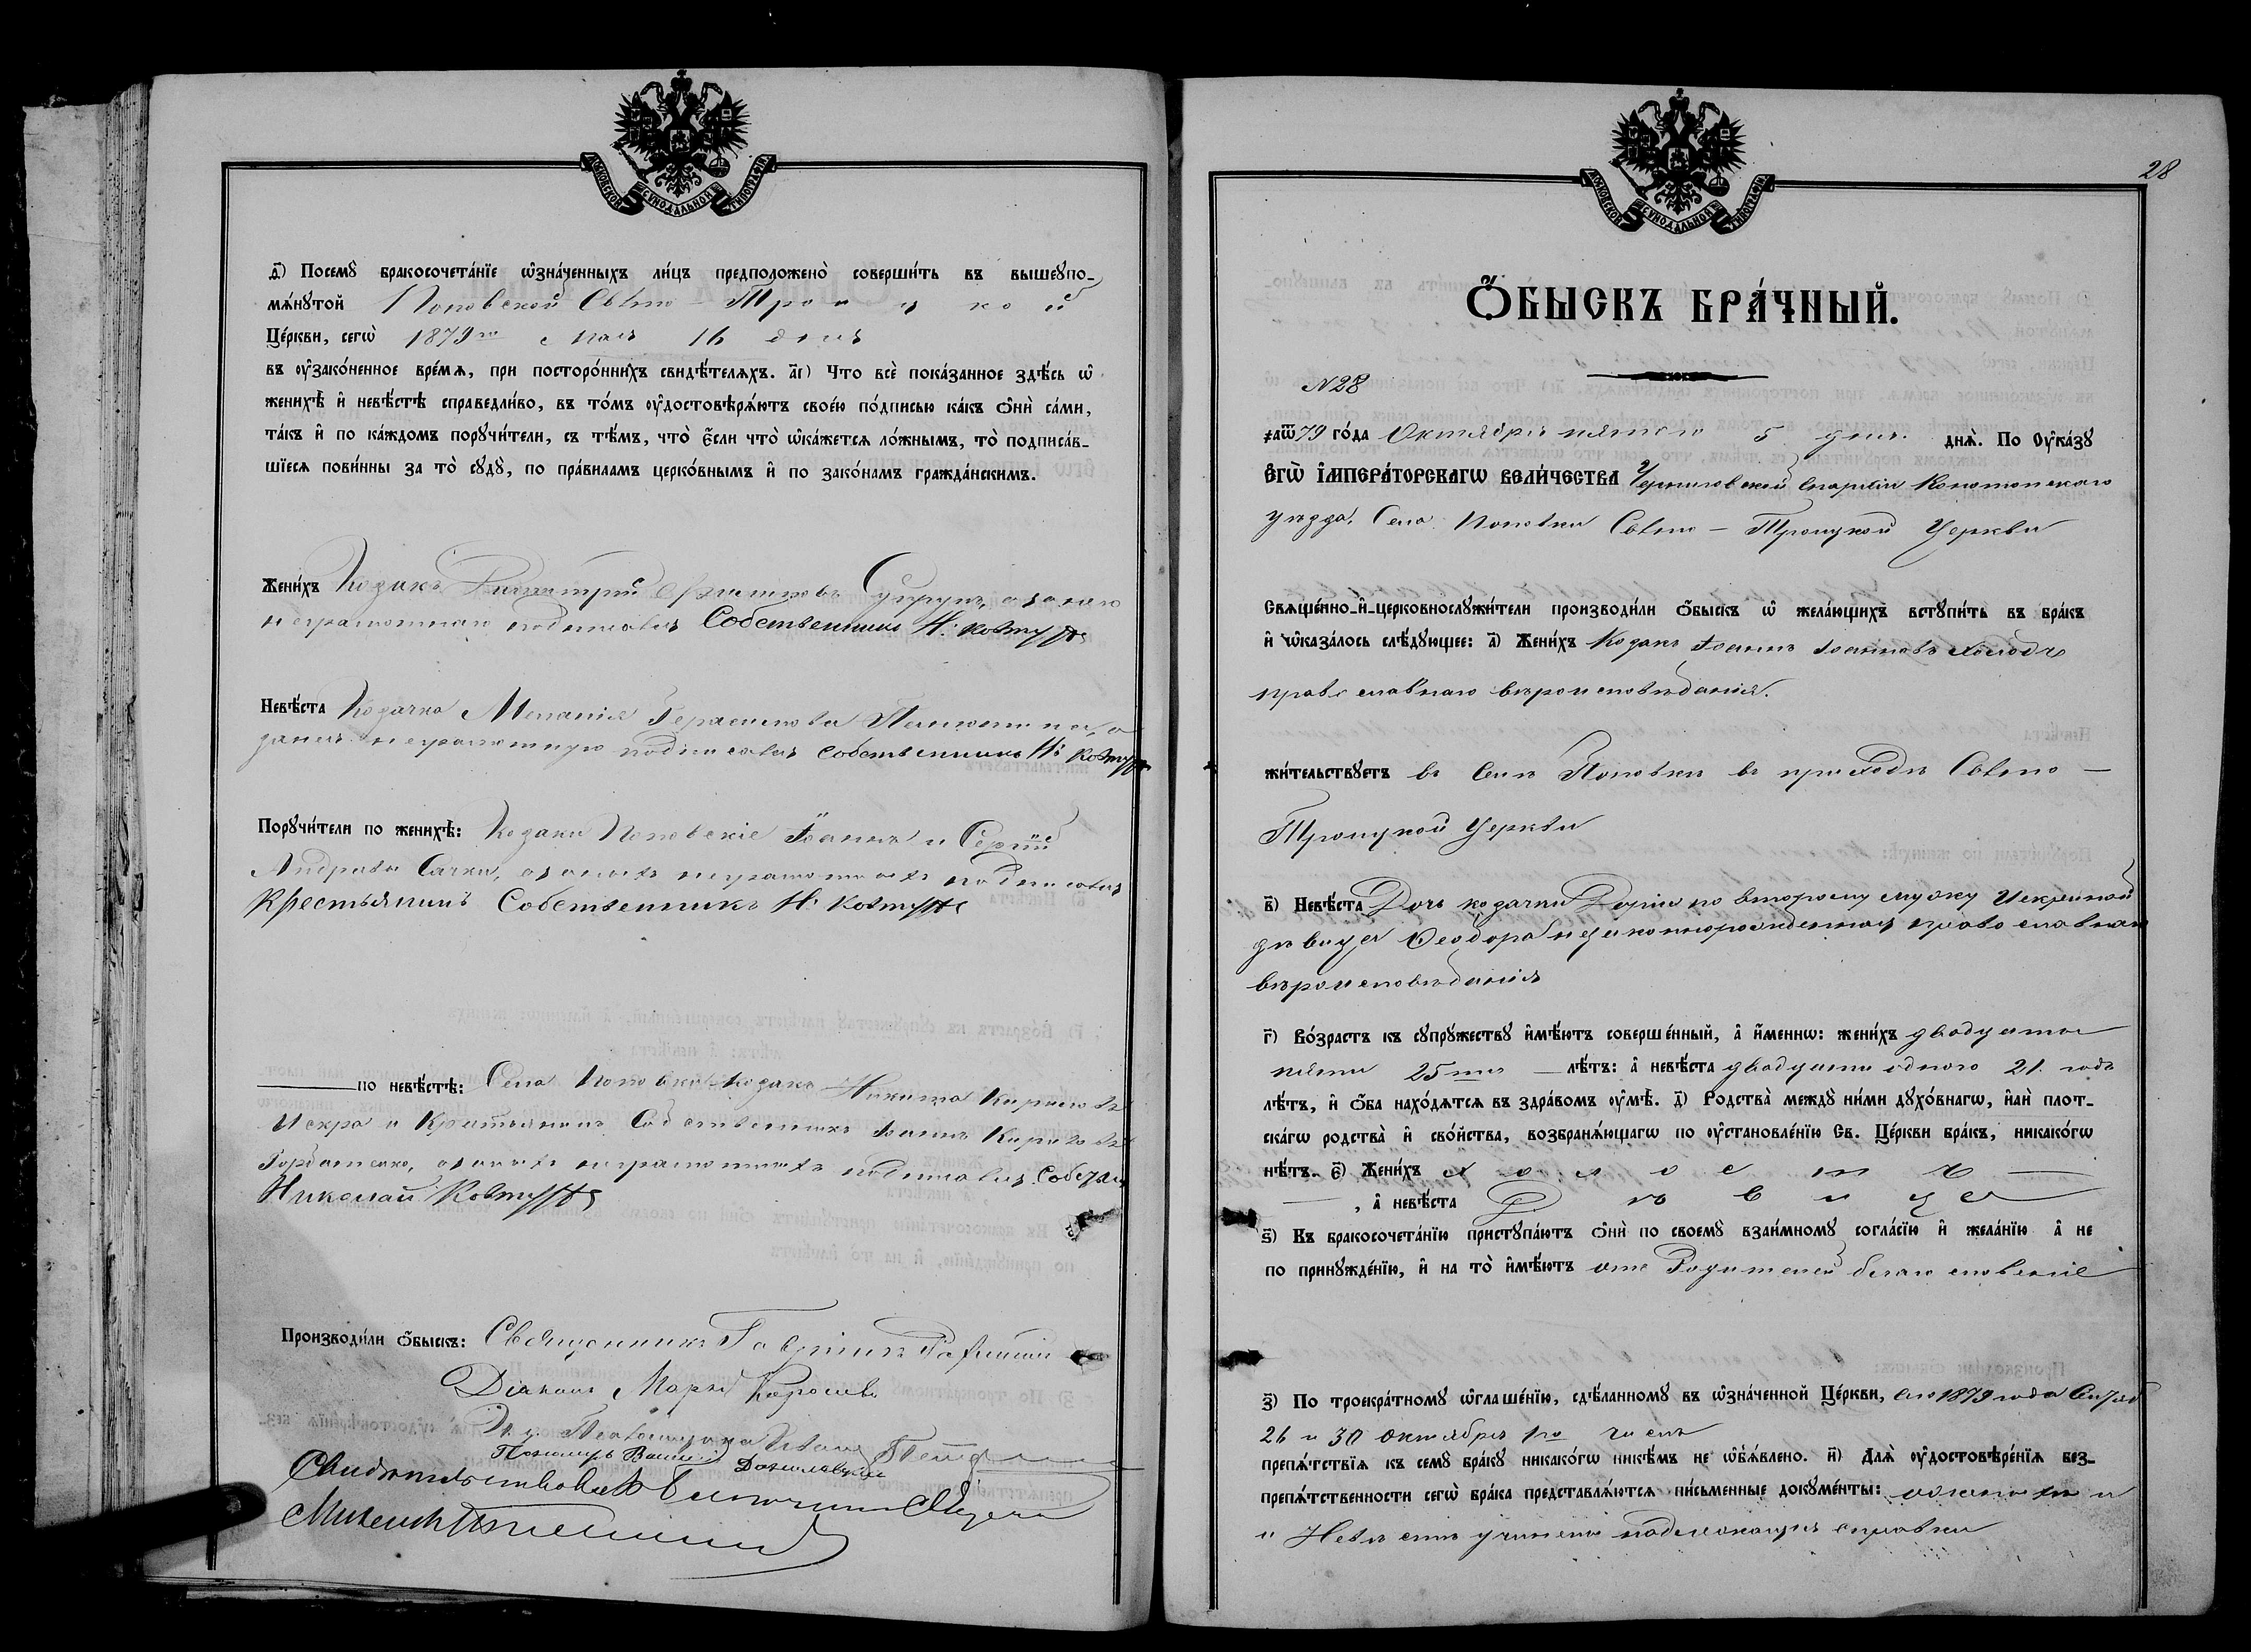 МОСКОВСКОЙ СѴНОДАЛЬНОЙ ТИПОГРАФІИ
Посемꙋ̀ бракосочета́нїе ѡ҆зна́ченныхъ ли́цъ предположено̀ соверши́ть въ вышеꙋпо-
мѧ́нꙋтой Поповской Свято-Троицкой
Це́ркви, сегѡ̀ 1879го Мая 16 дня
въ ᲂу҆зако́ненное вре́мѧ, при посторо́ннихъ свидѣ́телѧхъ. а҃і) Что̀ всѐ пока́занное здѣ́сь ѡ҆
женихѣ̀ и҆ невѣ́стѣ справедли́во, въ то́мъ ᲂу҆достовѣрѧ́ютъ свое́ю по́дписью ка́къ ѻ҆нѝ са́ми,
та́къ и҆ по ка́ждомъ порꙋчи́тели, съ тѣ́мъ, что̀ є҆́сли что̀ ѡ҆ка́жетсѧ ло́жнымъ, то̀ подписа́в-
шїесѧ пови́нны за то̀ сꙋдꙋ̀, по пра́виламъ церко́внымъ и҆ по зако́намъ гражда́нскимъ.
Жени́хъ Козакъ Димитрий Супрунъ, а за него
неграмотнаго подписался Собственникъ Н: Ковтунъ
Невѣ́ста Козачка Меланія Герасимова а
за нея неграмотную подписался Собственникъ Н: Ковтунъ
Порꙋчи́тели по женихѣ̀: Козаки Поповскіе Іоаннъ и Сергій
Андреевы Сачки, а за нихъ неграмотныхъ подписался
Крестьянинъ Собственникъ Н: Ковтунъ
по невѣ́стѣ: Села Поповки Козакъ Никита Кириловъ
Искра и Крестьянинъ Собственникъ Іоаннъ Кириловъ
Горбатенко, а за нихъ неграмотныхъ подписался Собствен
Николай Ковтунъ
Производи́ли ѻ҆́быскъ: Священникъ Гавріилъ
Діаконъ Марко
Пономарь Василій
28
МОСКОВСКОЙ СѴНОДАЛЬНОЙ ТИПОГРАФІИ
Ѻ҆́БЫСКЪ БРА́ЧНЫЙ.
N 28
҂аѡ҃ 79 го́да Октября пятого 5 дня днѧ̀. По Оу҆ка́зꙋ
ЕГѠ̀ І҆МПЕРА́ТОРСКАГѠ ВЕЛИ́ЧЕСТВА Черниговской Епархіи Конотопскаго
уѣзда, Села Поповки Свято-Троицкой Церкви
Свѧще́нно-и҆-церковнослꙋжи́тели производи́ли ѻ҆́быскъ ѡ҆ жела́ющихъ встꙋпи́ть въ бра́къ
и҆ ѡ҆каза́лось слѣ́дꙋющее: а҃) Жени́хъ Козакъ Іоаннъ Іоанновъ Холодъ
православнаго вѣроисповѣданія.
жи́тельствꙋетъ въ Селѣ Поповкѣ въ приходѣ Свято-
Троицкой Церкви
в҃) Невѣ́ста Дочь козачки Доріи по второму мужу Искриной
дѣвица Ѳеодора незаконнорожденная православнаго
вѣроисповѣданія
г҃) Во́зрастъ къ сꙋпрꙋ́жествꙋ и҆мѣ́ютъ соверше́нный, а҆ и҆́меннѡ: жени́хъ двадцати
пяти 25 ти лѣ́тъ: а҆ невѣ́ста двадцати одного 21 года
лѣ́тъ, и҆ ѻ҆́ба нахо́дѧтсѧ въ здра́вомъ ᲂу҆мѣ̀. д҃) Родства̀ междꙋ̀ ни́ми дꙋхо́внагѡ, и҆лѝ плот-
ска́гѡ родства̀ и҆ сво́йства, возбранѧ́ющагѡ по ᲂу҆становле́нїю Св. Це́ркви бра́къ, никако́гѡ
нѣ́тъ. є҃) Жени́хъ холостъ
, а҆ невѣ́ста Дѣвица
ѕ҃) Къ бракосочета́нїю пристꙋпа́ютъ ѻ҆нѝ по своемꙋ̀ взаи́мномꙋ согла́сїю и҆ жела́нїю а҆ не
по принꙋжде́нїю, и҆ на то̀ и҆мѣ́ютъ отъ Родителей благословеніе
з҃) По троекра́тномꙋ ѡ҆глаше́нїю, сдѣ́ланномꙋ въ ѡ҆зна́ченной Це́ркви, сего 1879 года Сентяб
26 и 30 Октября 1го числъ
препѧ́тствїѧ къ семꙋ̀ бра́кꙋ никако́гѡ никѣ́мъ не ѡ҆бъѧ́влено. и҃) Длѧ̀ ᲂу҆достовѣре́нїѧ без-
препѧ́тственности сегѡ̀ бра́ка представлѧ́ютсѧ пи́сьменные докꙋме́нты: о женихѣ и
и Невѣстѣ учинена надлежащая справка